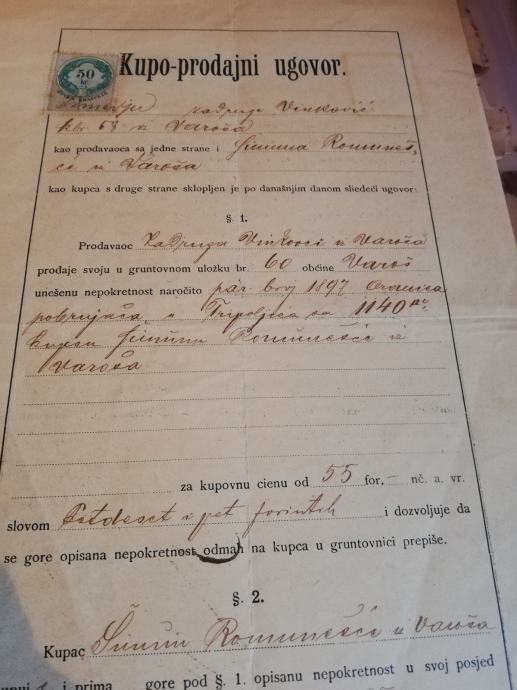 50
Kupo-prodajni ugovor.
zadruge Vinković
kbr 53 iz Varoša
kao prodavaoca sa jedne strane i Šimuna
iz Varoša
kao kupca s druge strane sklopljen je po današnjim danom sliedeći ugovor:
§ 1.
Prodavaoc Zadruga Vinkovci iz Varoša
prodaje svoju u gruntovnom ulošku br. 60 obćine Varoš
unešenu nepokretnost naročito par. broj 1897 Oranica
u sa 1140
kupcu Šimunu iz
Varoša
za kupovnu cienu od 55 for. – nč. a. vr.
slovom Petdeset i pet forintih i dozvoljuje da
se gore opisana nepokretnost odmah na kupca u gruntovnici prepiše.
§ 2.
Kupac Šimun iz Varoša
i prima gore pod § 1. opisanu nepokretnost u svoj posjed